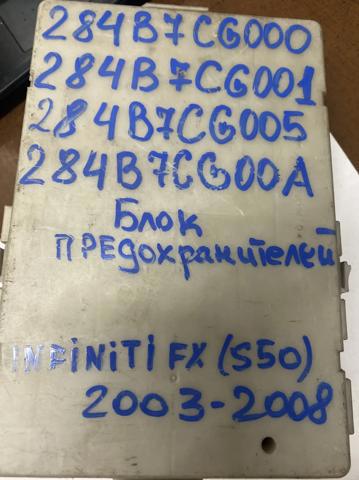 284B7CG000
284B7CG001
284B7CG005
284B7CG00A
Блок
ПРЕДохранителей
INFINITI FX (S50)
2003-2008